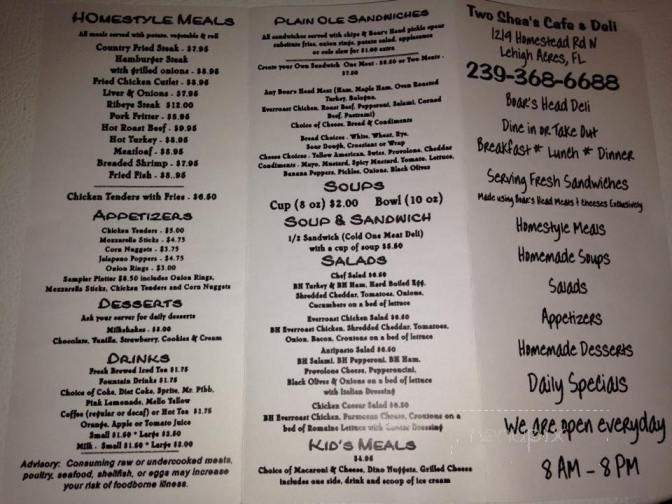 Homestyle Meals
All meals served with potato, vegetable & roll
Country Fried Steak - $7.95
Hamburger Steak
with grilled onions - $8.95
Fried Chicken Cutlet - $8.95
Liver & Onions - $7.95
Ribeye Steak $12.00
Pork Fritter - $8.95
Hot Roast Beef - $9.95
Hot Turkey - $8.95
Meatloaf - $8.95
Breaded Shrimp - $7.95
Fried Fish - $8.95
Chicken Tenders with Fries - $6.50
Appetizers
Chicken Tenders - $5.00
Mozzarella Sticks - $4.75
Corn Nuggets - $3.75
Jalapeno Poppers - $4.75
Onion Rings - $3.00
Sampler Platter $8.50 includes Onion Rings,
Mozzarella Sticks, Chicken Tenders and Corn Nuggets
Desserts
Ask your server for daily desserts
Milkshakes - $3.00
Chocolate, Vanilla, Strawberry, Cookies & Cream
Drinks
Fresh Brewed Iced Tea $1.75
Fountain Drinks $1.75
Choice of Coke, Diet Coke, Sprite, Mr. Pibb,
Pink Lemonade, Mello Yellow
Coffee (regular or decaf) or Hot Tea $1.75
Orange, Apple or Tomato Juice
Small $1.50 * Large $2.50
Milk - Small $1.50 * Large $2.00
Advisory: Consuming raw or undercooked meats,
poultry, seafood, shellfish, or eggs may increase
your risk of foodborne illness.
Plain Ole Sandwiches
All sandwiches served with chips & Boar's Head pickle spear
substitute fries, onion rings, potato salad, applesauce
or cole slaw for $1.00 extra
Create your Own Sandwich One Meat - $6.50 or Two Meats -
$7.50
Any Boar's Head Meat (Ham, Maple Ham, Oven Roasted
Turkey, Bologna,
Everroast Chicken, Roast Beef, Pepperoni, Salami, Corned
Beef, Pastrami)
Choice of Cheese, Bread & Condiments
Bread Choices - White, Wheat, Rye,
Sour Dough, Croissant or Wrap
Cheese Choices - Yellow American, Swiss, Provolone, Cheddar
Condiments - Mayo, Mustard, Spicy Mustard, Tomato, Lettuce,
Banana Peppers, Pickles, Onions, Black Olives
Soups
Cup (8 oz) $2.00 Bowl (10 oz)
Soup & Sandwich
1/2 Sandwich (Cold One Meat Deli)
with a cup of soup $5.50
Salads
Chef Salad $6.50
BH Turkey & BH Ham, Hard Boiled Egg,
Shredded Cheddar, Tomatoes, Onions,
Cucumbers on a bed of lettuce
Everroast Chicken Salad $6.50
BH Everroast Chicken, Shredded Cheddar, Tomatoes,
Onion, Bacon, Croutons on a bed of lettuce
Antipasto Salad $6.50
BH Salami, BH Pepperoni, BH Ham,
Provolone Cheese, Pepperoncini,
Black Olives & Onions on a bed of lettuce
with Italian Dressing
Chicken Caesar Salad $6.50
BH Everroast Chicken, Parmesan Cheese, Croutons on a
bed of Romaine Lettuce with Caesar Dressing
Kid's Meals
$4.95
Choice of Macaroni & Cheese, Dino Nuggets, Grilled Cheese
includes one side, drink and scoop of ice cream
Two Shea's Cafe & Deli
1214 Homestead Rd N
Lehigh Acres, FL
239-368-6688
Boar's Head Deli
Dine in or Take Out
Breakfast * Lunch * Dinner
Serving Fresh Sandwiches
Made using Boar's Head Meats & Cheeses Exclusively
Homestyle Meals
Homemade Soups
Salads
Appetizers
Homemade Desserts
Daily Specials
We are open everyday
8 AM - 8 PM